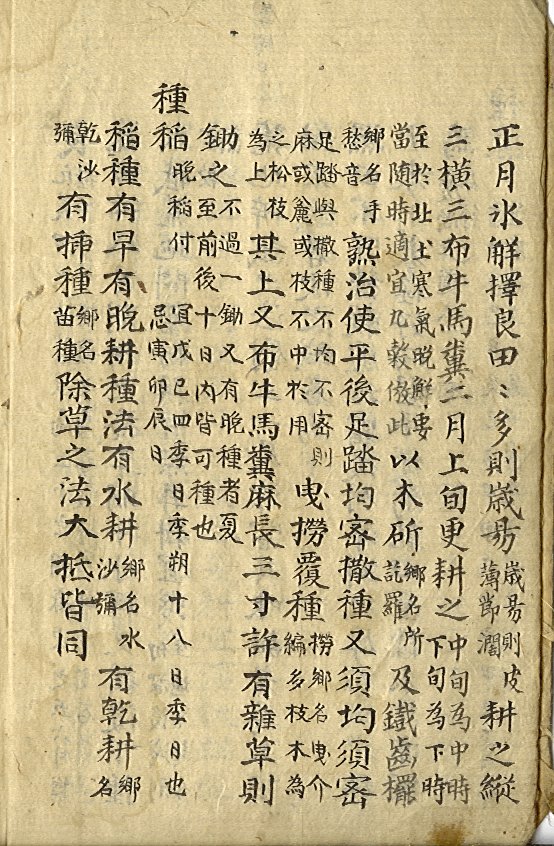 正月氷解擇良田〻多則歲易歲易則皮薄節濶耕之縱
三橫三布牛馬糞二月上旬更耕之中旬為中時下旬為下時
至於北土寒氣晩觧要當随時適宜凡穀倣此以木斫鄕名所訖羅及鐵齒擺
鄕名手愁音熟治使平後足踏均密撒種又須均須密
足踏與撒種不均不密則麻或麄或枝不中於用曳撈覆種撈鄕名曳介編多枝木為
之松枝為上其上又布牛馬糞麻長三寸許有雜草則
鋤之不過一鋤又有晩種者夏至前後十日內皆可種也
種稻晩稻付宜戊己四季日季朔十八日季日也忌寅卯辰日
稻種有早有晩耕種法有水耕鄕名水沙彌有乾耕鄕名
乾沙彌有揷種鄕名苗種除草之法大抵皆同